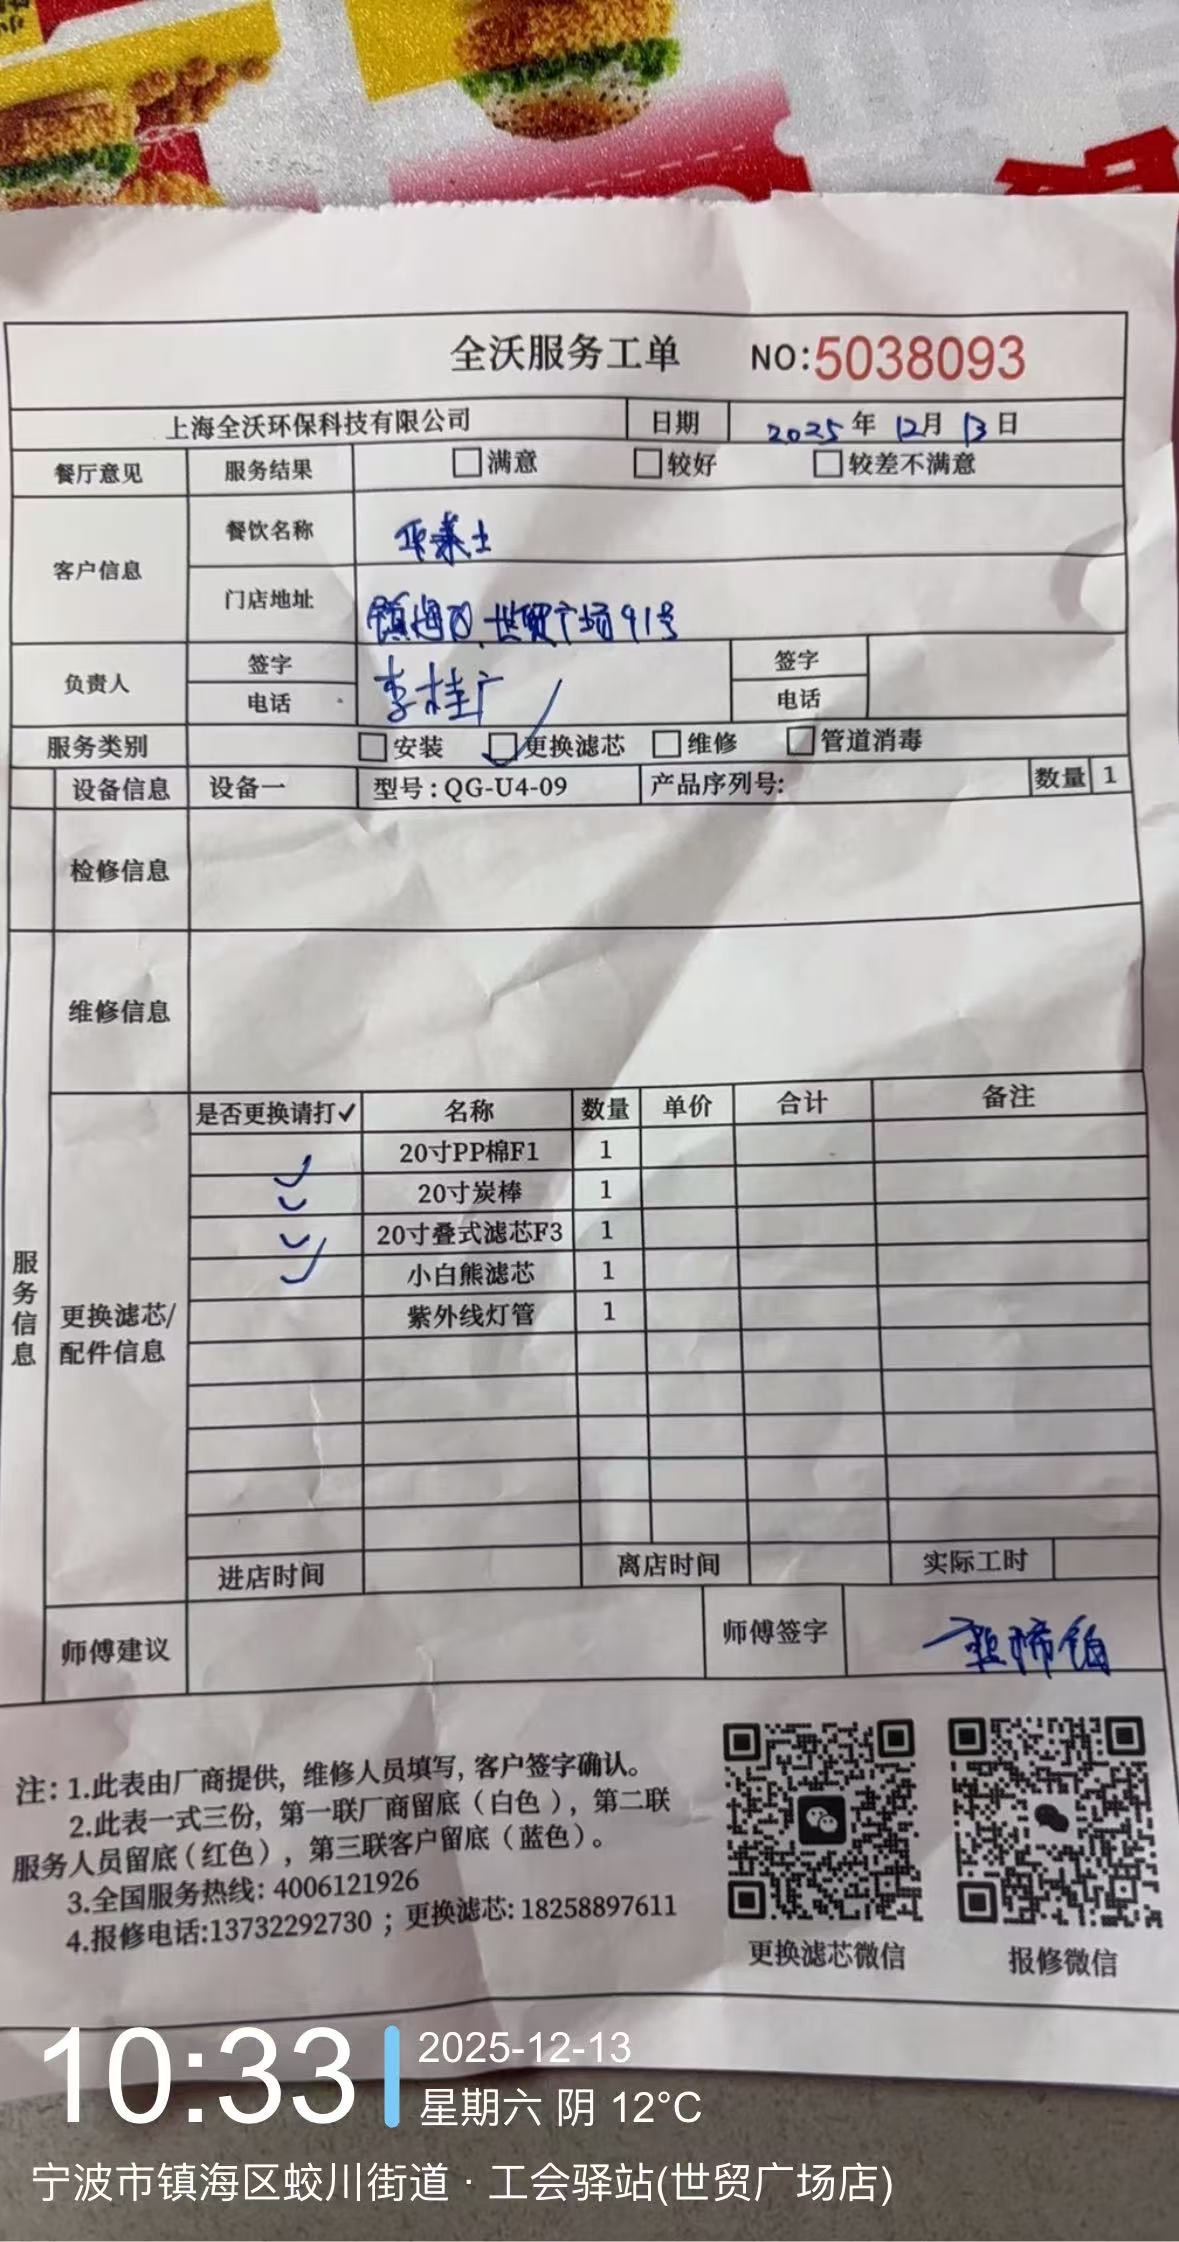 全沃服务工单 NO:5038093
上海全沃环保科技有限公司 日期 2025年 12月 13日
餐厅意见 服务结果 □满意 □较好 □较差不满意
客户信息 餐饮名称 华莱士
门店地址 镇海区.世贸广场91号
负责人 签字 李桂广 签字
电话 电话
服务类别 □安装 ☑更换滤芯 □维修 □管道消毒
设备信息 设备一 型号:QG-U4-09 产品序列号: 数量 1
检修信息
维修信息
服务信息
更换滤芯/
配件信息
是否更换请打✓ 名称 数量 单价 合计 备注
✓ 20寸PP棉F1 1
✓ 20寸炭棒 1
✓ 20寸叠式滤芯F3 1
✓ 小白熊滤芯 1
紫外线灯管 1
进店时间 离店时间 实际工时
师傅建议 师傅签字
注: 1.此表由厂商提供, 维修人员填写, 客户签字确认。
2.此表一式三份, 第一联厂商留底（白色）, 第二联
服务人员留底(红色), 第三联客户留底（蓝色）。
3.全国服务热线: 4006121926
4.报修电话:13732292730 ; 更换滤芯: 18258897611
更换滤芯微信 报修微信
10:33
2025-12-13
星期六 阴 12°C
宁波市镇海区蛟川街道 · 工会驿站(世贸广场店)